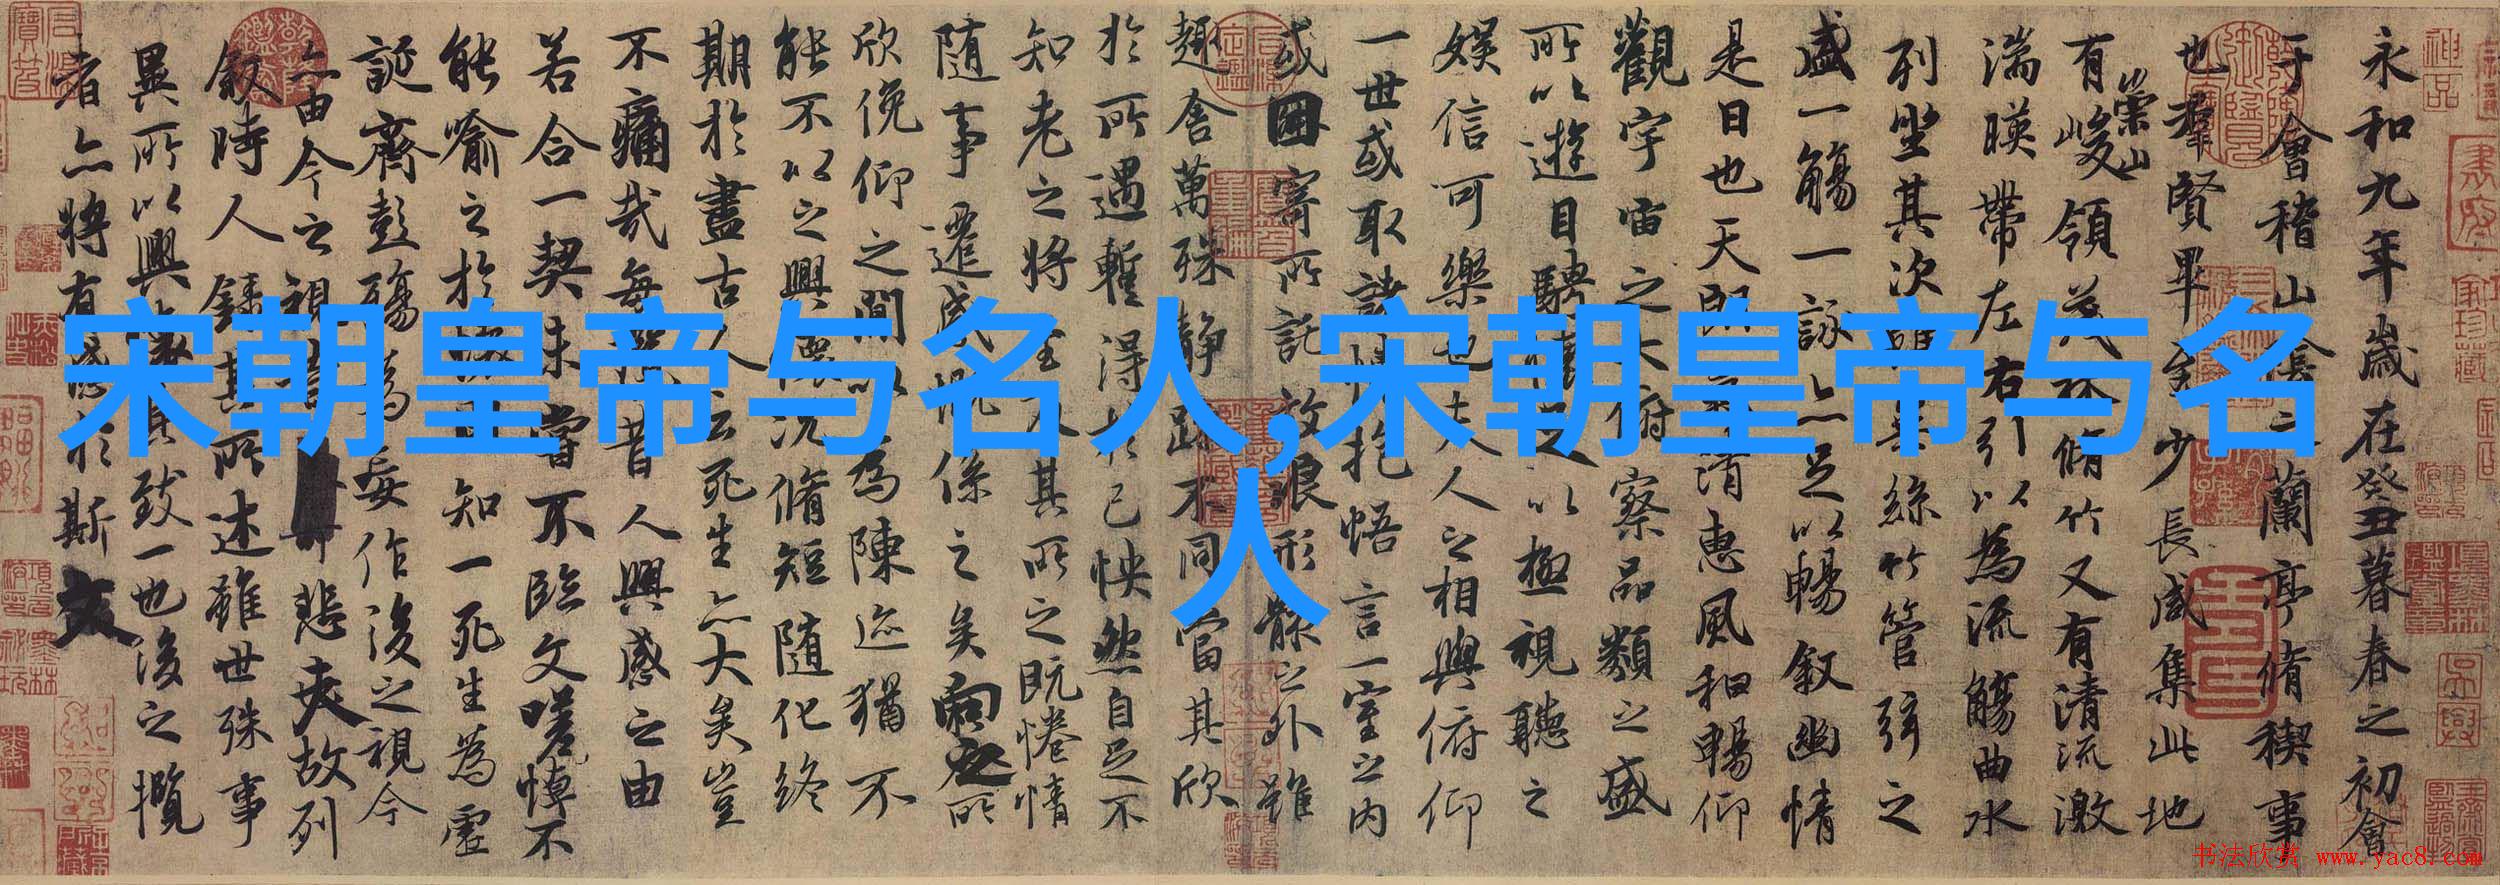 宋朝皇帝与名人,宋朝皇帝与名
人
永和九年歲在癸丑暮春之初會
于會稽山陰之蘭亭脩稧事
也羣賢畢至少長咸集此地
有崇山峻領茂林脩竹又有清流激
湍暎帶左右引以為流觴曲水
列坐其次雖無絲竹管弦之
盛一觴一詠亦足以暢叙幽情
是日也天朗氣清惠風和暢仰
觀宇宙之大俯察品類之盛
所以遊目騁懷足以極視聽之
娛信可樂也夫人之相與俯仰
一世或取諸懷抱悟言一室之內
或因寄所託放浪形骸之外雖
趣舍萬殊靜躁不同當其欣
於所遇蹔得於己怏然自足不
知老之將至及其所之既惓情
隨事遷感慨係之矣向之所
欣俛仰之閒以為陳迹猶不
能不以之興懷況脩短隨化終
期於盡古人云死生亦大矣豈
不痛哉每攬昔人興感之由
若合一契未嘗不臨文嗟悼不
能喻之於懷固知一死生為虛
誕齊彭殤為妄作後之視今
亦由今之視昔悲夫故列
叙時人錄其所述雖世殊事
異所以興懷其致一也後之攬
者亦將有感於斯文
书法欣赏 www.yac8.com